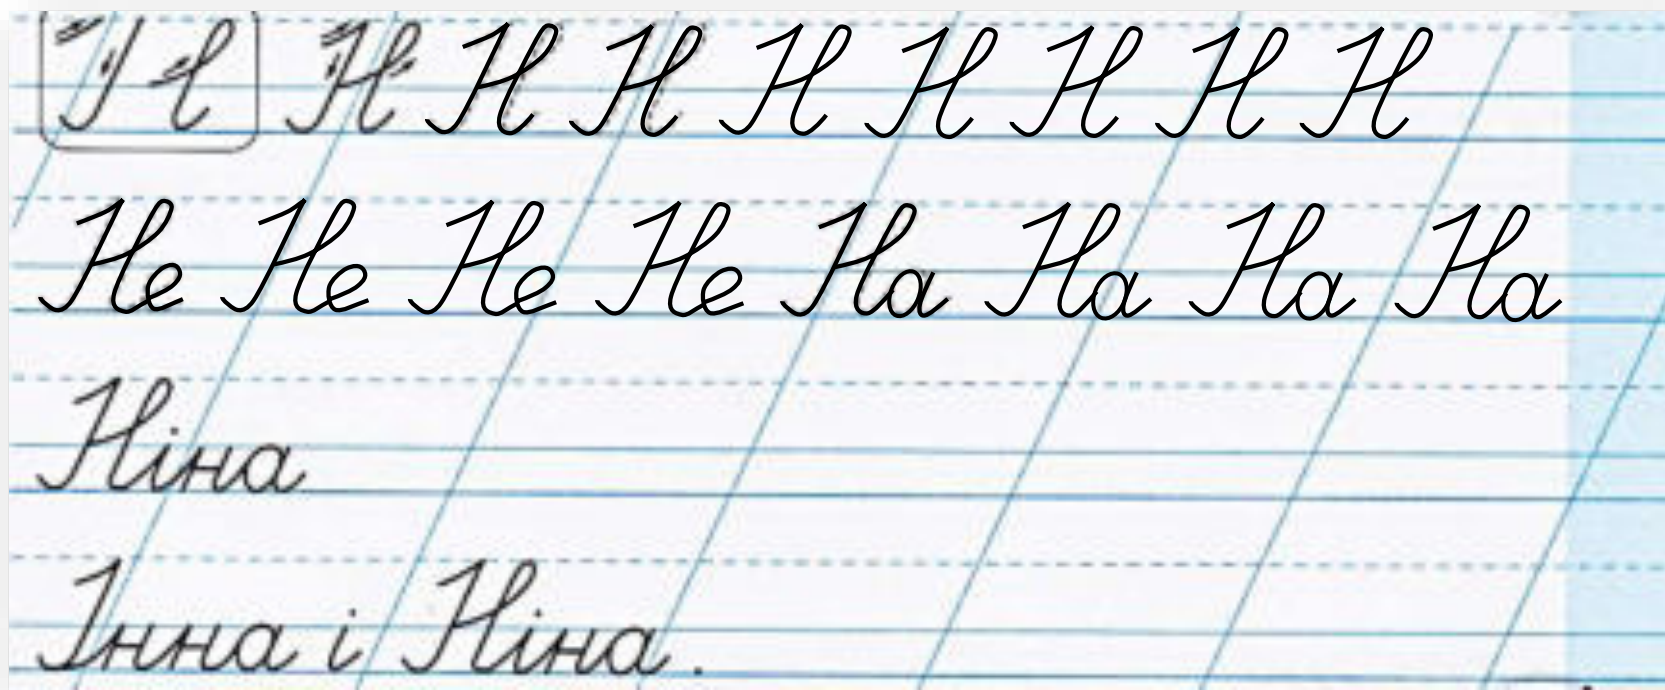 Н Н Н Н Н Н Н Н
Не Не Не Не На На На На
Ніна
Інна і Ніна.